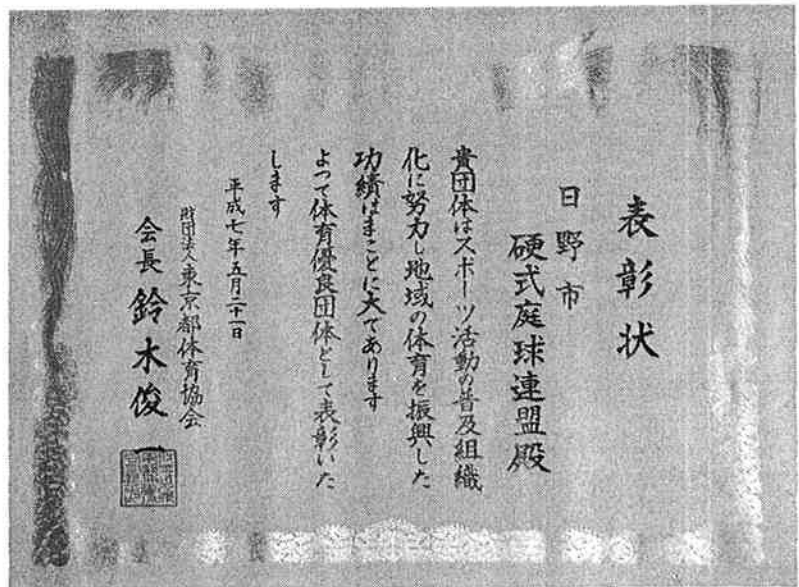 表彰状
日野市
硬式庭球連盟殿
貴団体はスポーツ活動の普及組織
化に努力し地域の体育を振興した
功績はまことに大であります
よつて体育優良団体として表彰いた
します
平成七年五月二十一日
財団法人東京都体育協会
会長 鈴木俊一